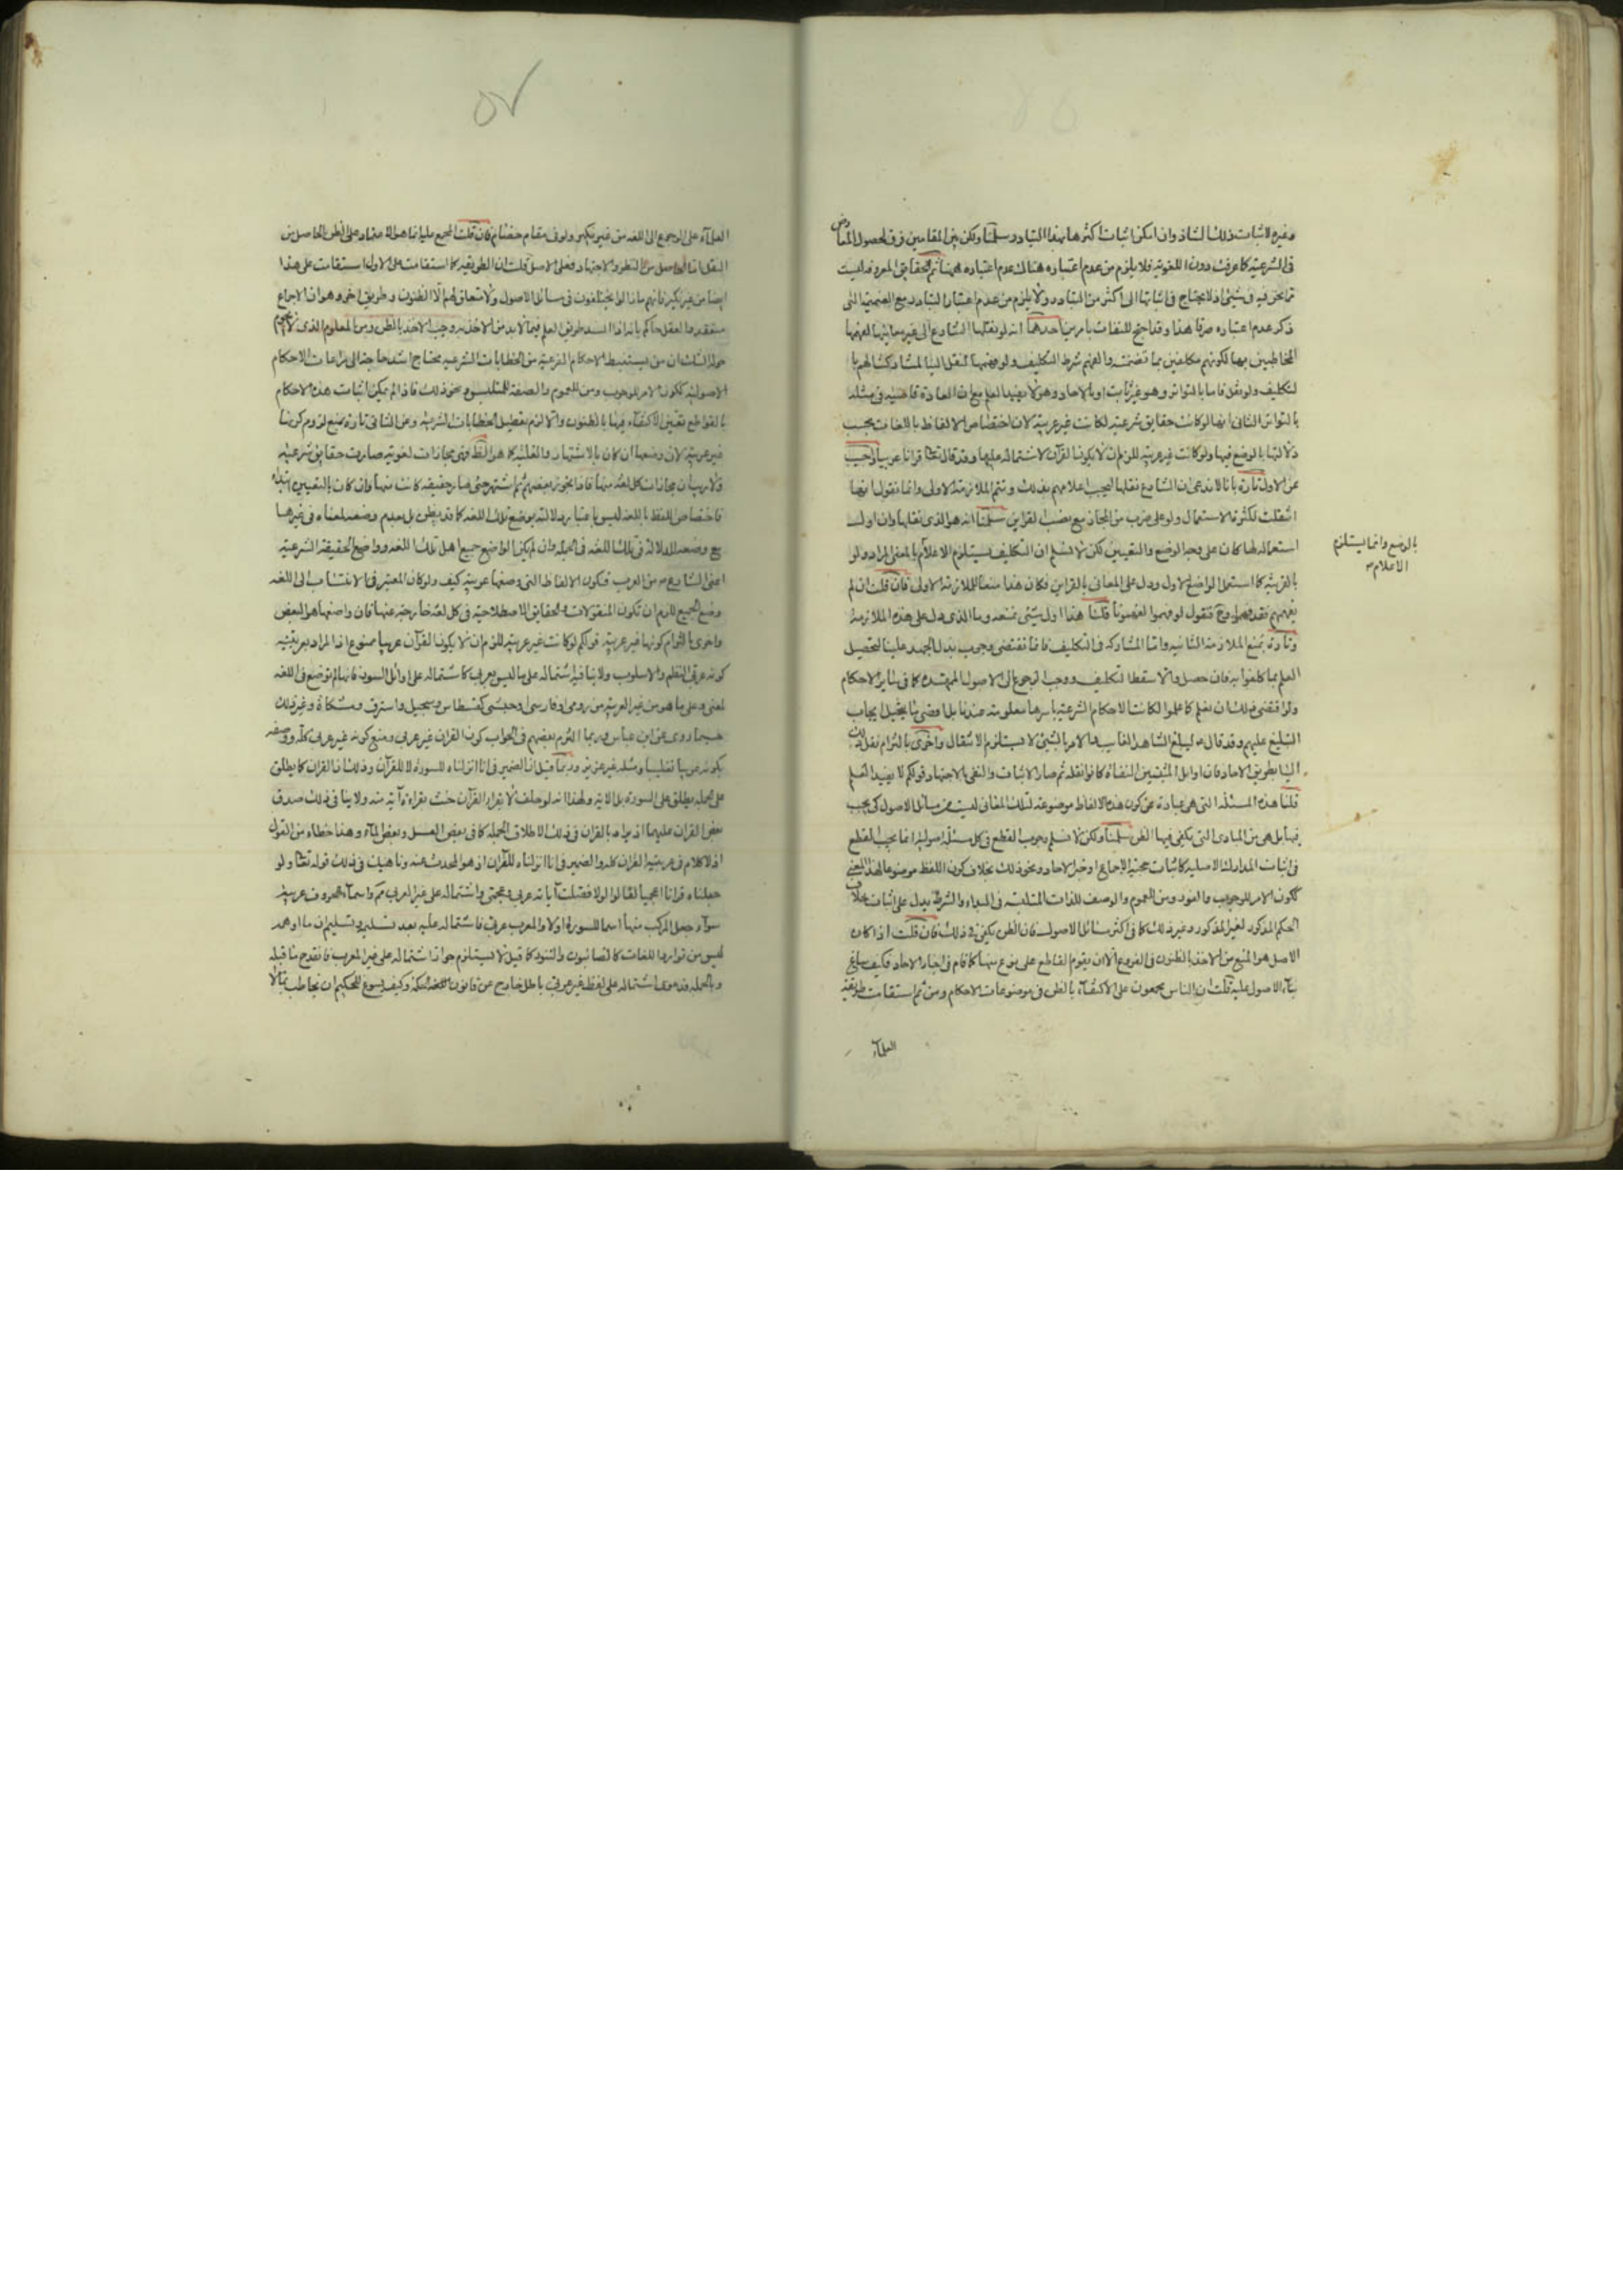 وغيره لاثبات ذلك الشاذ وان امكن اثبات اكثرها بهذا التبادر سلمنا ولكن بين المقامين فرق لحصول المعارض
في الشرعية كما عرفت دون اللغوية فلا يلزم من عدم اعتباره هناك عدم اعتباره ههنا ثم الحقايق المعروفة ليست
مما نحن فيه في شئ اذ لا يحتاج في اثباتها الى اكثر من التبادر ولا يلزم من عدم اعتبار التبادر مع الضميمة التى
ذكر عدم اعتباره صرفا هذا وقد احتج للنفات بامرين احدهما انه لو نقلها الشارع الى غير معانيها لفهمها
المخاطبين بها لكونهم مكلفين بما تضمنته والفهم شرط التكليف ولو فهمها لنقل الينا لمشاركتنا لهم با
لتكليف ولو نقل فاما بالتواتر وهو غير ثابت او بالاحاد وهو لا يفيد العلم مع ان العادة قاضية في مثله
بالتواتر الثاني انها لو كانت حقايق شرعية لكانت غير عربية لان اختصاص الالفاظ باللغات بحسب
دلالتها بالوضع فيها ولو كانت غير عربية للزم ان لا يكون القرآن لاشتماله عليها وقد قال تعالى قرانا عربيا واجيب
عن الاول تارة بانا لا ندعى ان الشارع نقلها ليجب اعلامهم بذلك وتتم الملازمة الاولى وانما نقول انها
انتقلت لكثرة الاستعمال ولو على ضرب من المجاز مع نصب القراين سلمنا انه هو الذى نقلها وان اول
استعماله لها كان على وجه الوضع والتعيين لكن لا نسلم ان التكليف يستلزم الاعلام بالمعنى المراد ولو
بالوضع وانما يستلزم
الاعلام
بالقرينة كما استعمل الواضع الاول ودل على المعانى بالقراين فكان هذا منعا للملازمة الاولى فان قلت ان لم
يفهمهم فقد فهموا وح نقول لو فهموا لفهمونا قلنا هذا اول شئ نمنعه وما الذى دل على هذه الملازمة
وتارة بمنع الملازمة الثانية واما المشاركة في التكليف فانما تقتضى وجوب بذل الجهد علينا لتحصيل
العلم بما كلفوا به فان حصل والا سقط التكليف ووجب الرجوع الى الاصول الممهدة كما في ساير الاحكام
ولو اقتضى ذلك ان نعلم كما علموا لكانت الاحكام الشرعية باسرها معلومة عندنا
التبليغ عليهم وقد قال ليبلغ الشاهد الغايب فالامر بالشئ لا يستلزم الامتثال واخرى بالتزام نقل ذلك
الينا بطريق الاحاد فان اوايل المثبتين النفاة كانوا نقلة ثم صار الاثبات والنفى بالاجتهاد قولكم لا يفيد العلم
قلنا هذه المسئلة التى هى عبارة عن كون هذه الالفاظ موضوعة لتلك المعاني ليست من مسائل الاصول كى يجب
فيها بل هى من المبادى التى يكفى فيها الظن سلمنا ولكن لا نسلم وجوب القطع في كل مسئلة اصولية انما يجب القطع
في اثبات المدارك الاصلية كاثبات حجية الاجماع او خبر الاحاد ونحو ذلك بخلاف كون اللفظ موضوعا لهذا المعنى
ككون الامر للوجوب والفور ومن للعموم والوصف للذات المتلبسة في المبداء والشرط يدل على اثبات خلاف
الحكم المذكور لغير المذكور وغير ذلك كما في اكثر مسائل الاصول فان الظن يكفى في ذلك فان قلت اذا كان
الاصل هو المنع من الاخذ بالظنون في الفروع الا ان يقوم القاطع على نوع منها كما قام في اخبار الاحاد فكيف ساغ
بناء الاصول عليه قلت ان الناس مجمعون على الاكتفاء بالظن في موضوعات الاحكام ومن ثم استقامت طريقة
العلماء
العلماء على الرجوع الى اللغة من غير نكير ولو في مقام فان قلت المجمع عليه انما هو الاعتماد على الظن الحاصل من
النقل اما الحاصل من النظر والاجتهاد فعلى الاصل قلت ان الطريقة كما استقامت على الاول استقامت على هذا
ايضا من غير نكير فانهم ما زالوا يختلفون في مسائل الاصول ولا متعلق لهم الا الظنون وطريق اخر وهو ان الاجماع
منعقد والعقل حاكم بانه اذا انسد طريق العلم فيما لا بد من الاخذ به وجب الاخذ بالظن ومن المعلوم الذى لا يحوم
حوله الشك ان من يستنبط الاحكام الفرعية من الخطابات الشرعية محتاج اشد حاجة الى مراعات الاحكام
الاصولية ككون الامر للوجوب ومن للعموم والصفة للمتلبس ونحو ذلك فاذا لم يمكن اثبات هذه الاحكام
بالقواطع تعين الاكتفاء فيها بالظنون والا لزم تعطيل الخطابات الشرعية وعن الثاني تارة بمنع لزوم كونها
غير عربية لان وضعها ان كان بالاشتهار والغلبة كما هو الظ فهى مجازات لغوية صارت حقايق شرعية
ولا ريب ان مجازات كل لغة منها فاذا تجوز بعضهم ثم اشتهر حتى صار حقيقة كانت منها وان كانت بالتعيين ابتداء
فاختصاص اللفظ باللغة ليس باعتبار دلالته بوضع تلك اللغة كما قد يظن بل بعدم وضعه لمعناه في غيرها
مع وضعه للدلالة في تلك اللغة في الجملة وان لم يكن الواضع جميع اهل تلك اللغة وواضع الحقيقة الشرعية
اعنى الشارع من العرب فتكون الالفاظ التى وضعها عربية كيف ولو كان المعتبر في الانتساب الى اللغة
وضع الجميع للزم ان تكون المنقولات والحقايق الاصطلاحية في كل لغة خارجة عنها فان واضعها هو البعض
واخرى بالتزام كونها غير عربية قولكم لو كانت غير عربية للزم ان لا يكون القرآن عربيا ممنوع اذ المراد بعربيته
كونه عربى النظم والاسلوب ولا ينافيه اشتماله على ما ليس بعربى كاشتماله على اوائل السور فانها لم توضع في اللغة
لمعنى وعلى ما هو من غير العربية من رومى وفارسى وحبشى كقسطاس وسجيل واستبرق ومشكاة وغير ذلك
حسبما روى عن ابن عباس وربما التزم بعضهم في الجواب كون القران غير عربى ومنع كونه غير عربى كله ووصفه
بكونه عربيا تغليبا ومثله غير عزيز وربما قيل ان الضمير في انا انزلناه للسورة لا للقرآن وذلك ان القران كما يطلق
على الجملة يطلق على السورة بل الاية ولهذا انه لو حلف لا يقرأ القرآن حنث بقراءة آية منه ولا ينافي ذلك صدق
بعض القران عليها اذ يراد بالقران في ذلك الاطلاق الجملة كما في بعض العسل وبعض الماء وهذا خطاء من القول
اذ الكلام في عربية القران كله والضمير في انا انزلناه للقرآن اذ هو المحدث عنه وناهيك في ذلك قوله تعالى ولو
جعلناه قرانا اعجميا لقالوا لولا فصلت آياته
سواء جعل المركب منها اسما للسورة اولا والمعرب عربى فاشتماله عليه بعد
ليس من توارد اللغات كالصابون والتنور كما قيل لا يستلزم جواز اشتماله على غير المعرب
وبالجملة فدعوى اشتماله على لفظ غير عربى باطل خارج عن قانون وكيف يسوغ للحكيم ان يخاطب بما لا